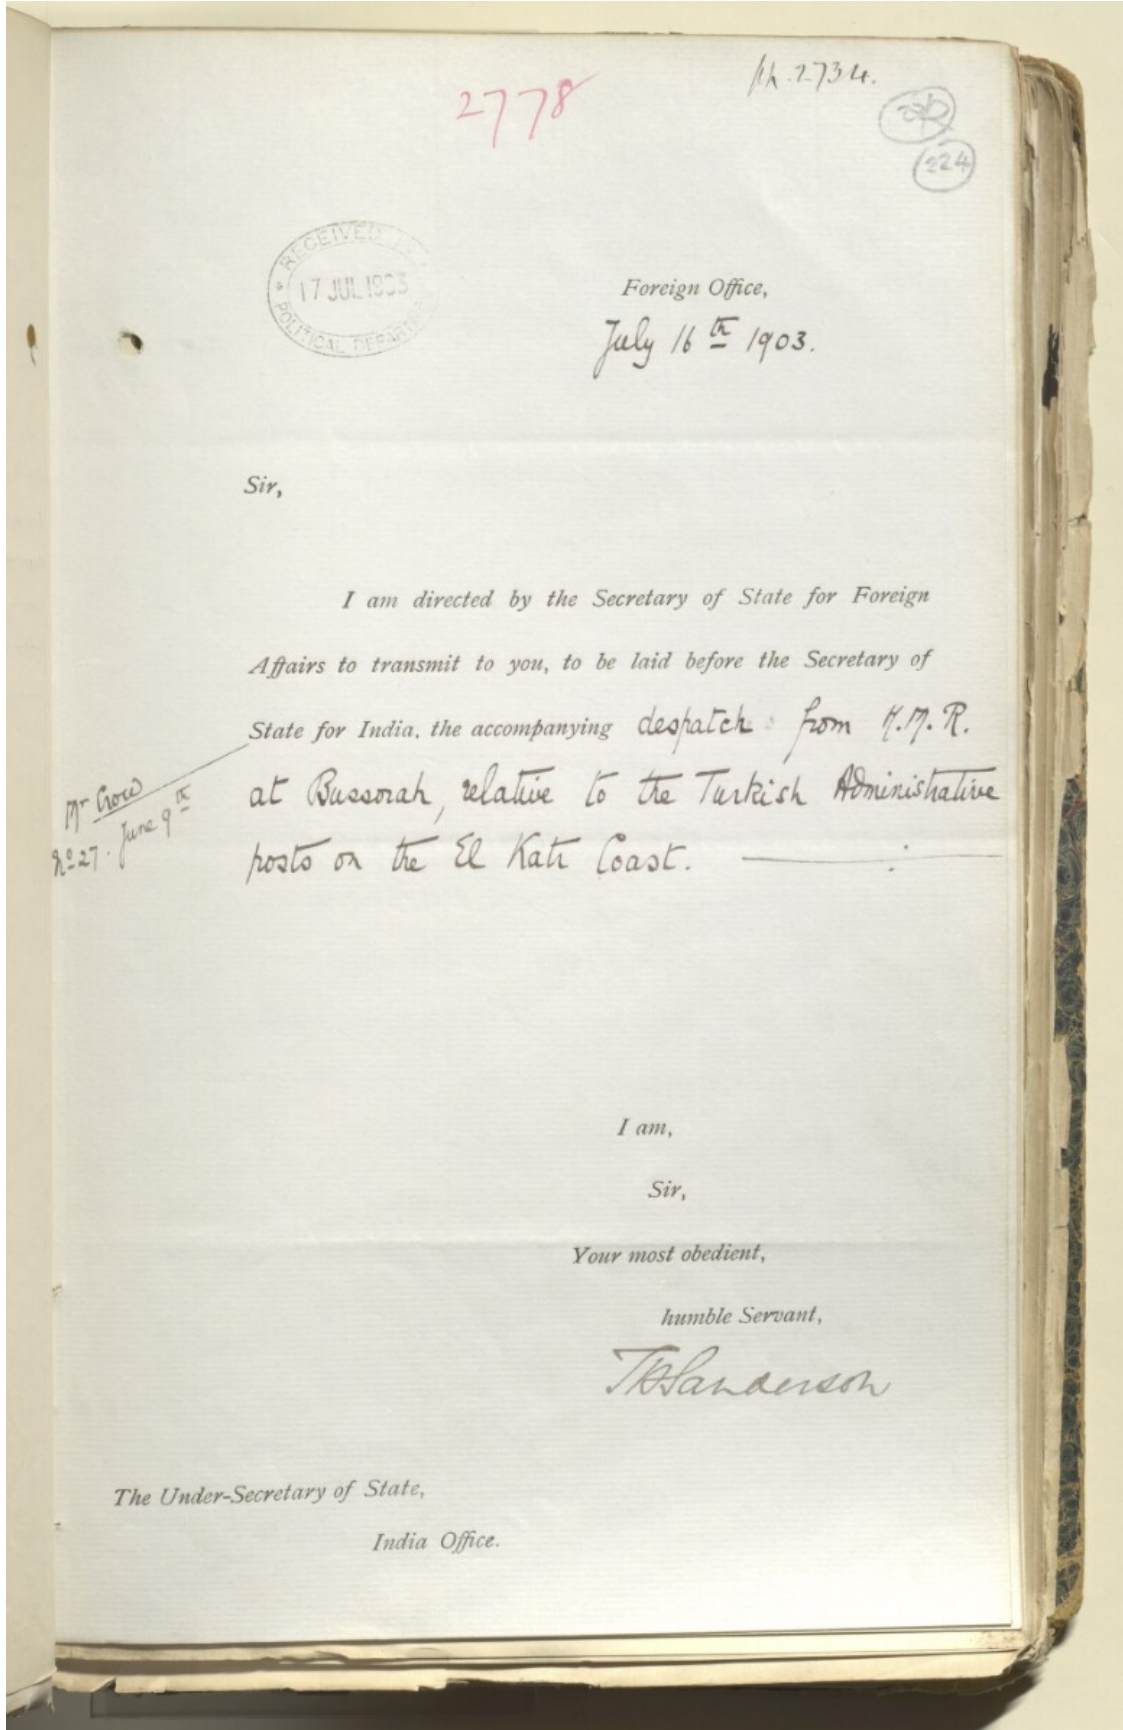 2778
2734.
224
RECEIVED IN
17 JUL 1903
POLITICAL DEPARTM
Foreign Office,
July 16th 1903.
Sir,
I am directed by the Secretary of State for Foreign
Affairs to transmit to you, to be laid before the Secretary of
State for India, the accompanying despatch from H.M.R.
at Bussorah, relative to the Turkish Administrative
posts on the El Katr Coast.
Mr Crow
No 27. June 9th
I am,
Sir,
Your most obedient,
humble Servant,
THSanderson
The Under-Secretary of State,
India Office.